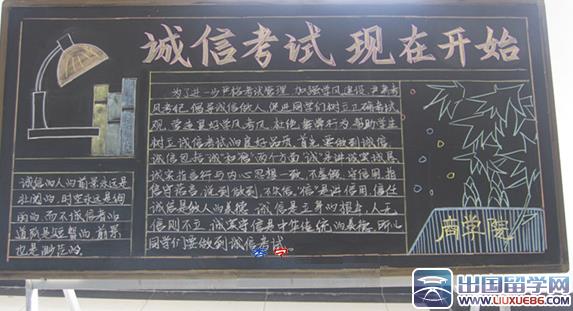 诚信考试 现在开始
为了进一步严格考试管理 加强学风建设 严肃考
风考纪 倡导诚信做人 促进同学们树立正确考试
观 营造良好学风考风 杜绝舞弊行为 帮助学生
树立诚信考试的良好品质 首先要做到诚信
诚信包括“诚”和“信”两个方面“诚”是讲诚实诚恳
诚实指言行与内心思想一致 不虚假 守信用 指
信守诺言 说到做到 不失信“信”是讲信用 信任
诚信是做人的美德 诚信是立身的根本 人无
信则不立 诚实守信是中华传统的美德 所以
同学们要做到诚信考试
诚信的人的前景永远是
壮阔的 时空永远是绚
丽的 而不诚信者的
道路是短暂的 前景
也是渺茫的
商学院
出国留学网
WWW.LIUXUE86.COM